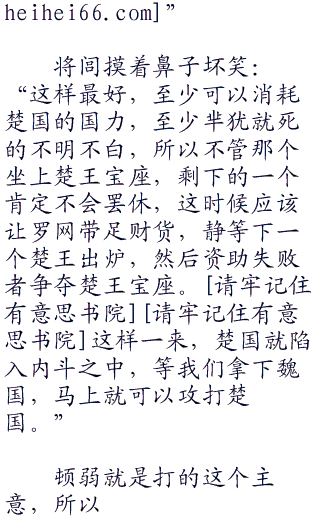 heihei66.com]”
将闾摸着鼻子坏笑：
“这样最好，至少可以消耗
楚国的国力，至少芈犹就死
的不明不白，所以不管那个
坐上楚王宝座，剩下的一个
肯定不会罢休，这时候应该
让罗网带足财货，静等下一
个楚王出炉，然后资助失败
者争夺楚王宝座。[请牢记住
有意思书院][请牢记住有意
思书院]这样一来，楚国就陷
入内斗之中，等我们拿下魏
国，马上就可以攻打楚
国。”
顿弱就是打的这个主
意，所以